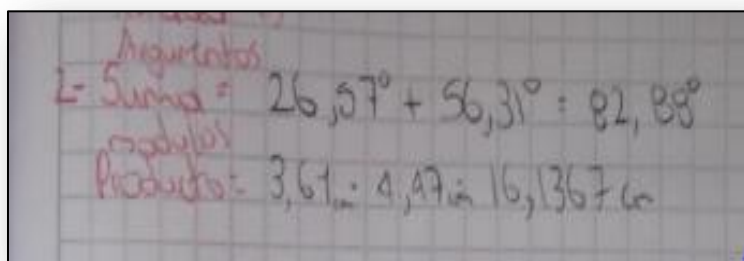 Argumentos
2- Suma = 26,57° + 56,31° = 82,88°
modulos
Producto = 3,61 cm · 4,47 cm = 16,1367 cm